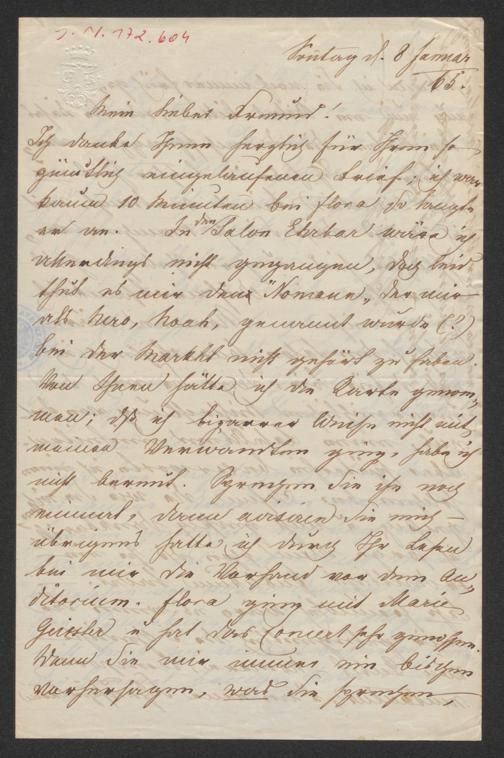 J. N. 172.604
Sontag d. 8 Januar
/65.
Mein lieber Freund!
Ich danke Ihnen herzlich für Ihren so
günstlich eingelaufenen Brief; ich war
kaum 10 Minuten bei Flora so langte
er an. In den Salon Ehrbar wäre ich
allerdings nicht gegangen, doch leid
thut es mir den "Nomane", der mir
als Nero, Noah, genannt wurde (?)
bei der nicht gehört zu haben.
Von Ihnen hätte ich die Karte genom-
men; daß ich bizarrer Weise nicht mit
meinen Verwandten ging, habe ich
nicht bereut. Sprechen Sie ihn noch
einmal, dann Sie mich —
übrigens hatte ich durch Ihr Lesen
bei mir die Vorhand vor dem Au-
ditorium. Flora ging mit Marie
Geistler u hat das Concert sehr genossen.
Wenn Sie mir immer ein bischen
vorhersagen, was Sie sprechen,